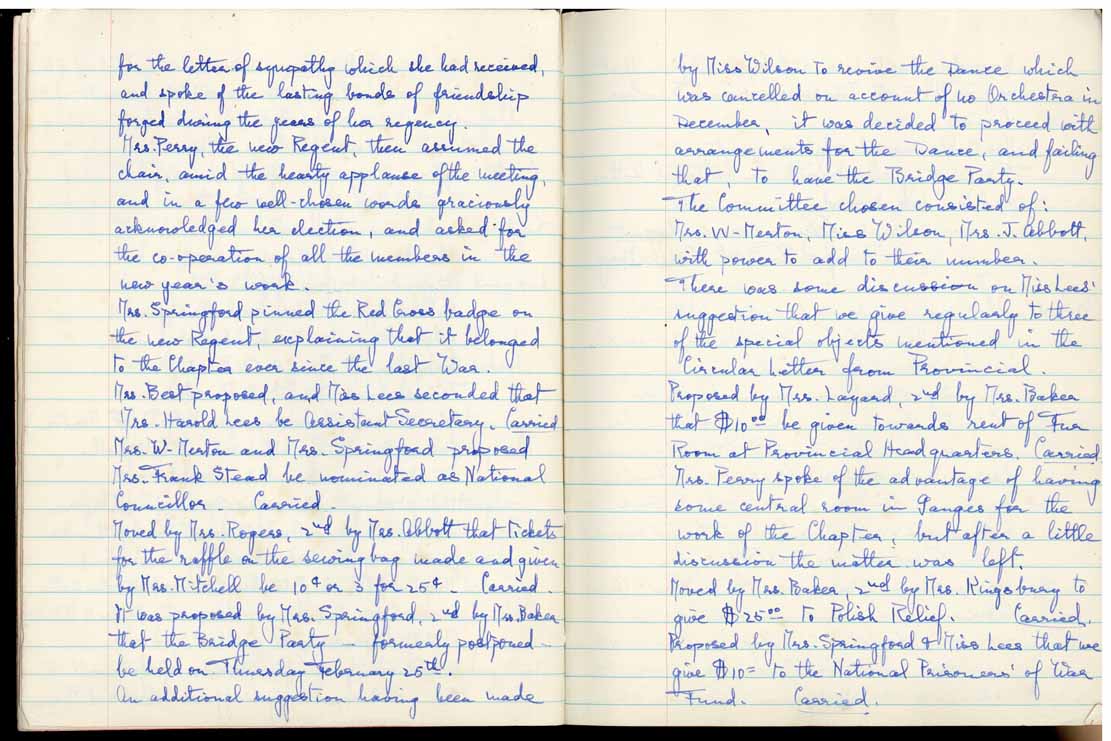 for the letter of sympathy which she had received,
and spoke of the lasting bonds of friendship
forged during the years of her regency.
Mrs. Perry, the new Regent, then assumed the
chair, amid the hearty applause of the meeting,
and in a few well-chosen words graciously
acknowledged her election, and asked for
the co-operation of all the members in the
new year's work.
Mrs. Springford pinned the Red Cross badge on
the new Regent, explaining that it belonged
to the Chapter ever since the last War.
Mrs. Best proposed, and Miss Lees seconded that
Mrs. Harold Lees be Assistant Secretary. Carried
Mrs. W-Merton and Mrs. Springford proposed
Mrs. Frank Stead be nominated as National
Councillor. Carried.
Moved by Mrs. Rogers, 2nd by Mrs. Abbott that Tickets
for the raffle on the sewing bag made and given
by Mrs. Mitchell be 10¢ or 3 for 25¢. Carried.
It was proposed by Mrs. Springford, 2nd by Mrs. Baker
that the Bridge Party - formerly postponed -
be held on Thursday February 25th.
An additional suggestion having been made
by Miss Wilson to revive the Dance which
was cancelled on account of no Orchestra in
December, it was decided to proceed with
arrangements for the Dance, and failing
that, to have the Bridge Party.
The Committee chosen consisted of:
Mrs. W-Merton, Miss Wilson, Mrs. J. Abbott,
with power to add to their number.
There was some discussion on Miss Lees'
suggestion that we give regularly to three
of the special objects mentioned in the
Circular Letter from Provincial.
Proposed by Mrs. Layard, 2nd by Mrs. Baker
that $10.00 be given towards rent of Fur
Room at Provincial Headquarters. Carried
Mrs. Perry spoke of the advantage of having
some central room in Ganges for the
work of the Chapter, but after a little
discussion the matter was left.
Moved by Mrs. Baker, 2nd by Mrs. Kingsbury to
give $25.00 To Polish Relief. Carried.
Proposed by Mrs. Springford & Miss Lees that we
give $10= to the National Prisoners' of War
Fund. Carried.